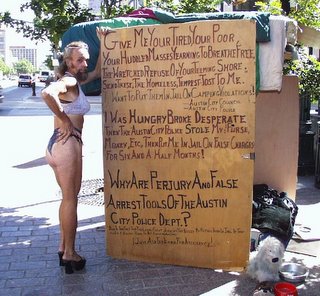 Give Me Your Tired, Your Poor,
Your Huddled Masses Yearning To Breathe Free.
The Wretched Refuse Of Your Teeming Shore:
Send These, The Homeless, Tempest-Tost To Me.
I Want To Put Them In Jail On Camping Violations!
—Austin City Council
—Austin City Police
I Was Hungry Broke Desperate
Then The Austin City Police Stole My Purse,
Money, Etc, Then Put Me In Jail On False Charges
For Six And A Half Months!
Why Are Perjury And False
Arrest Tools Of The Austin
City Police Dept.?